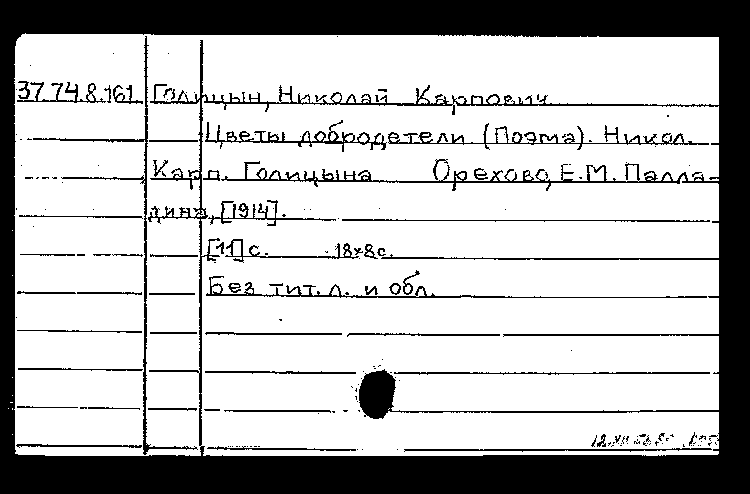 37.74.8.161 Голицын, Николай Карпович
Цветы добродетели (Поэма). Никол.
Карп. Голицына Орехово, Е.М. Палла-
дина, [1914].
[11] с. 18×8 с.
Без тит. л. и обл.